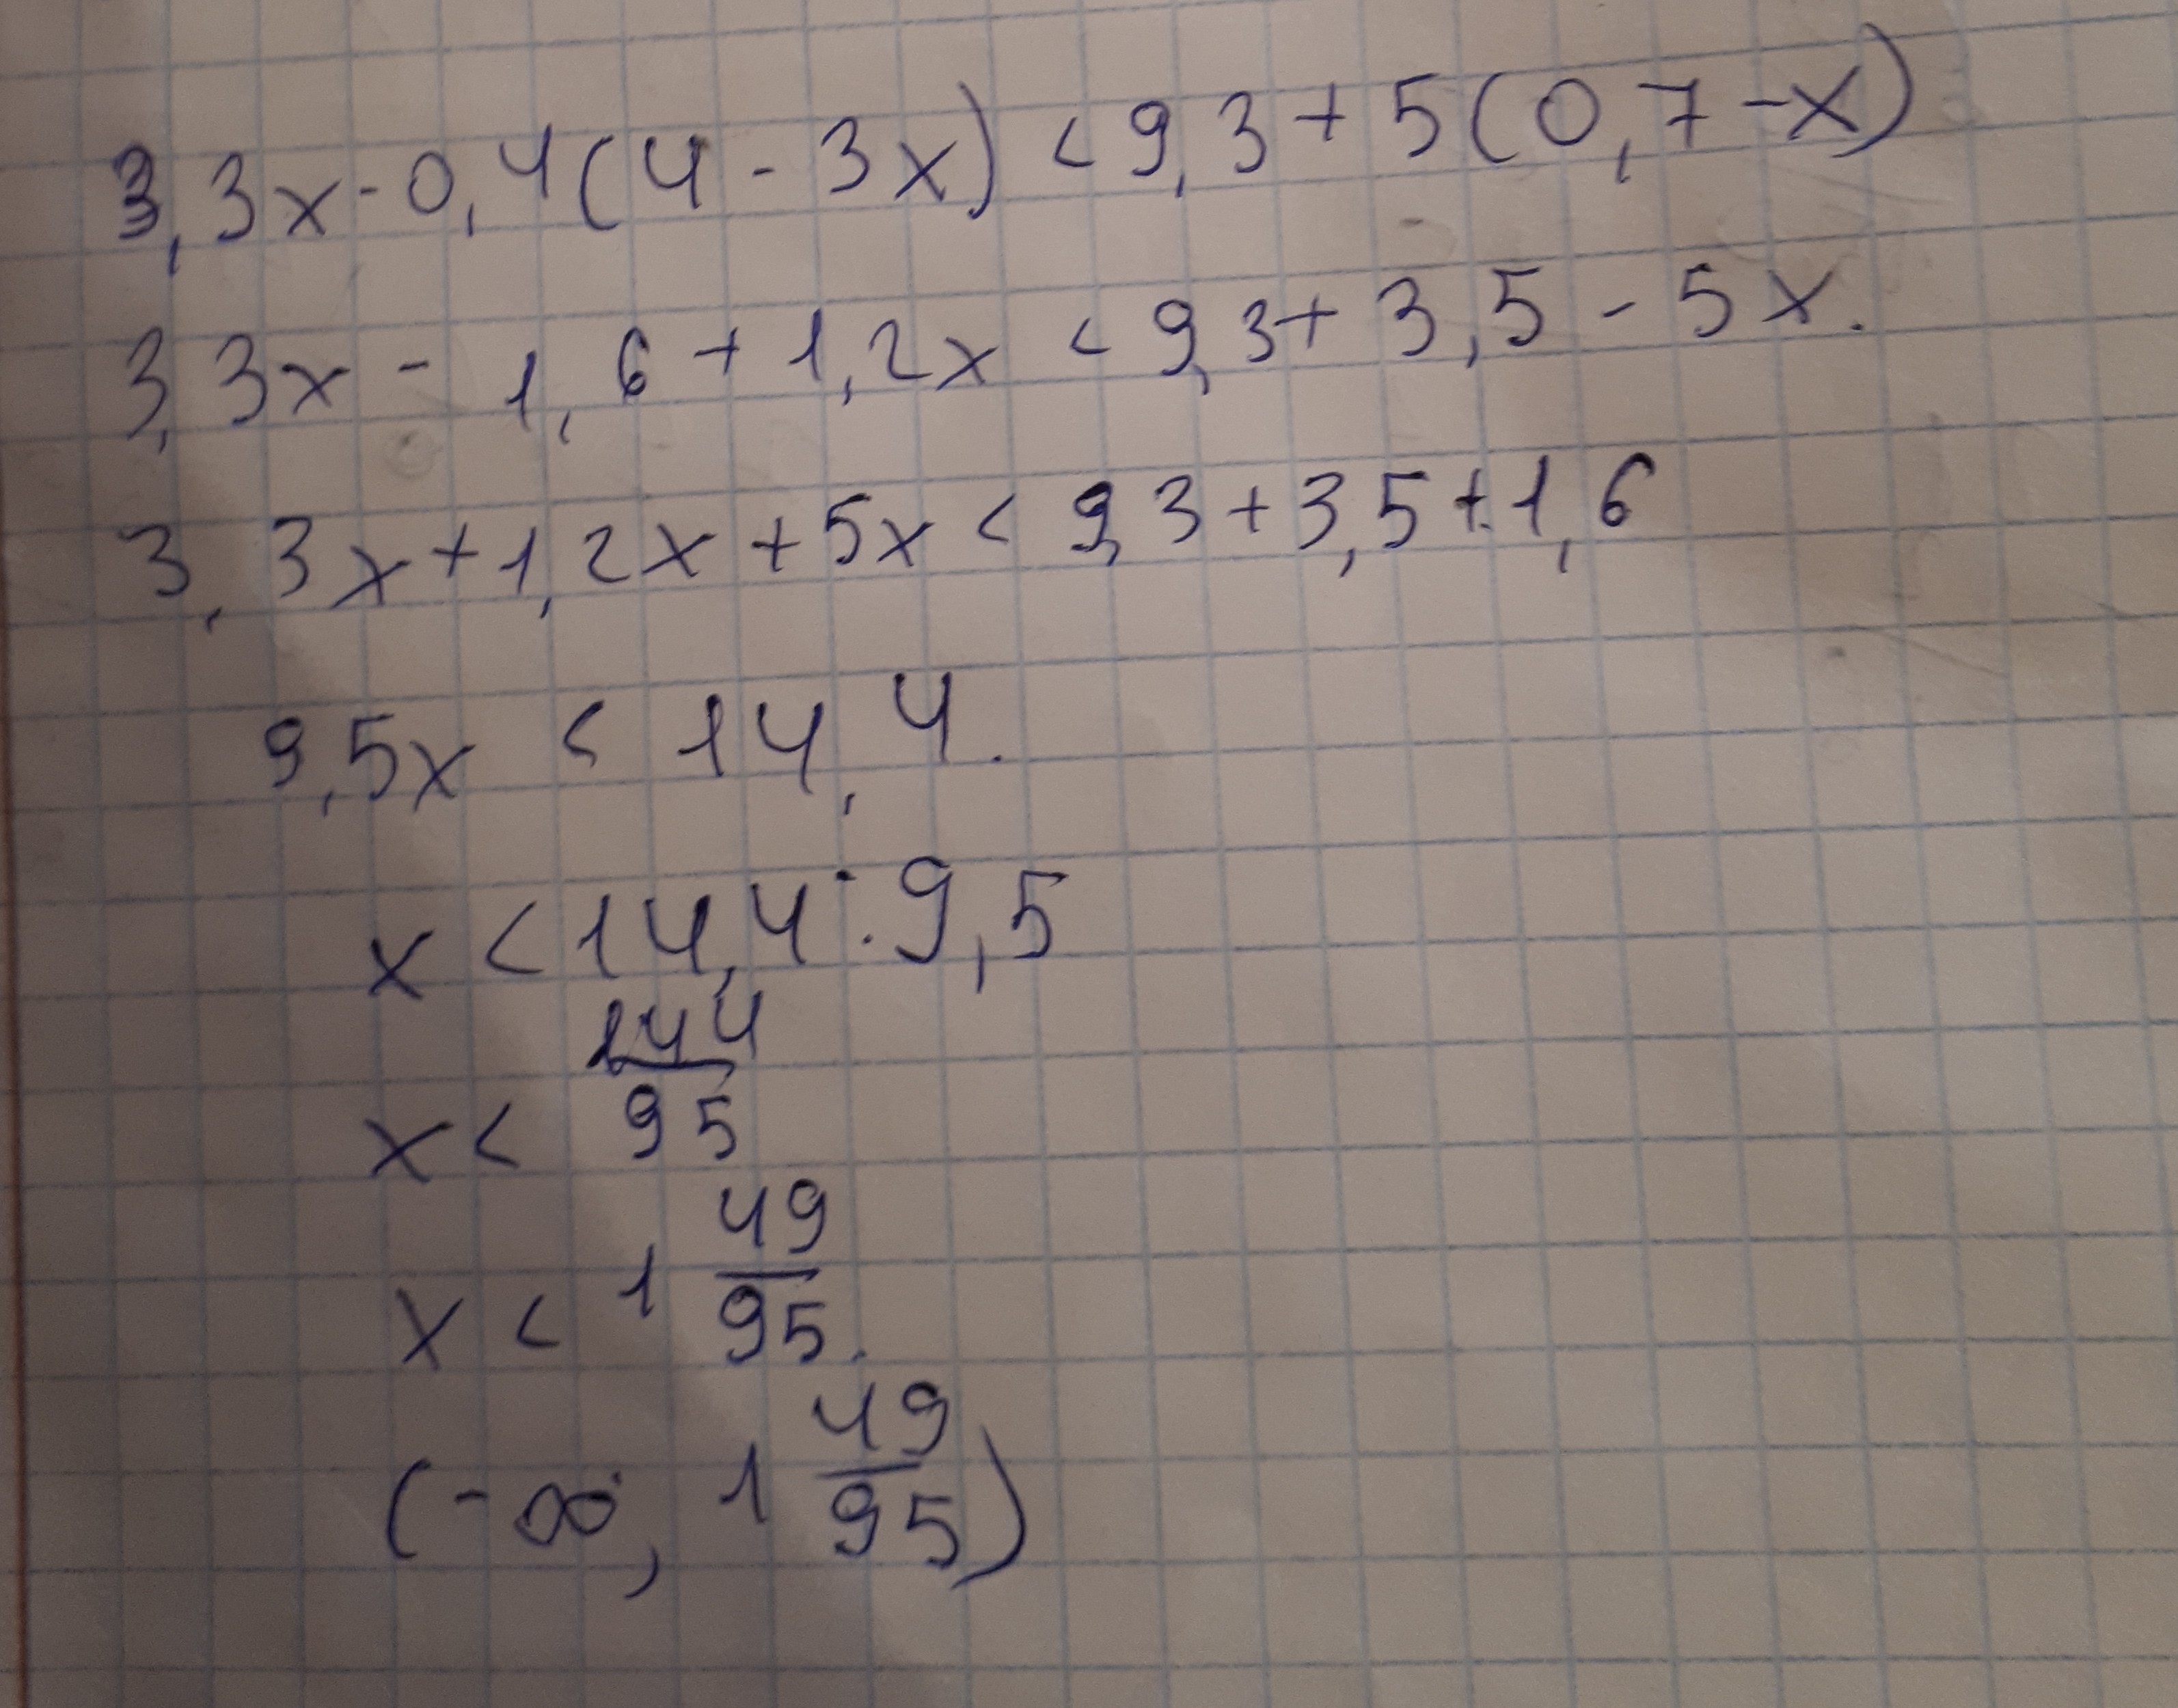 3,3x - 0,4(4 - 3x) < 9,3 + 5(0,7 - x)
3,3x - 1,6 + 1,2x < 9,3 + 3,5 - 5x.
3,3x + 1,2x + 5x < 9,3 + 3,5 + 1,6
9,5x < 14,4.
x < 14,4 : 9,5
x < 144/95
x < 1 49/95.
(-∞, 1 49/95)